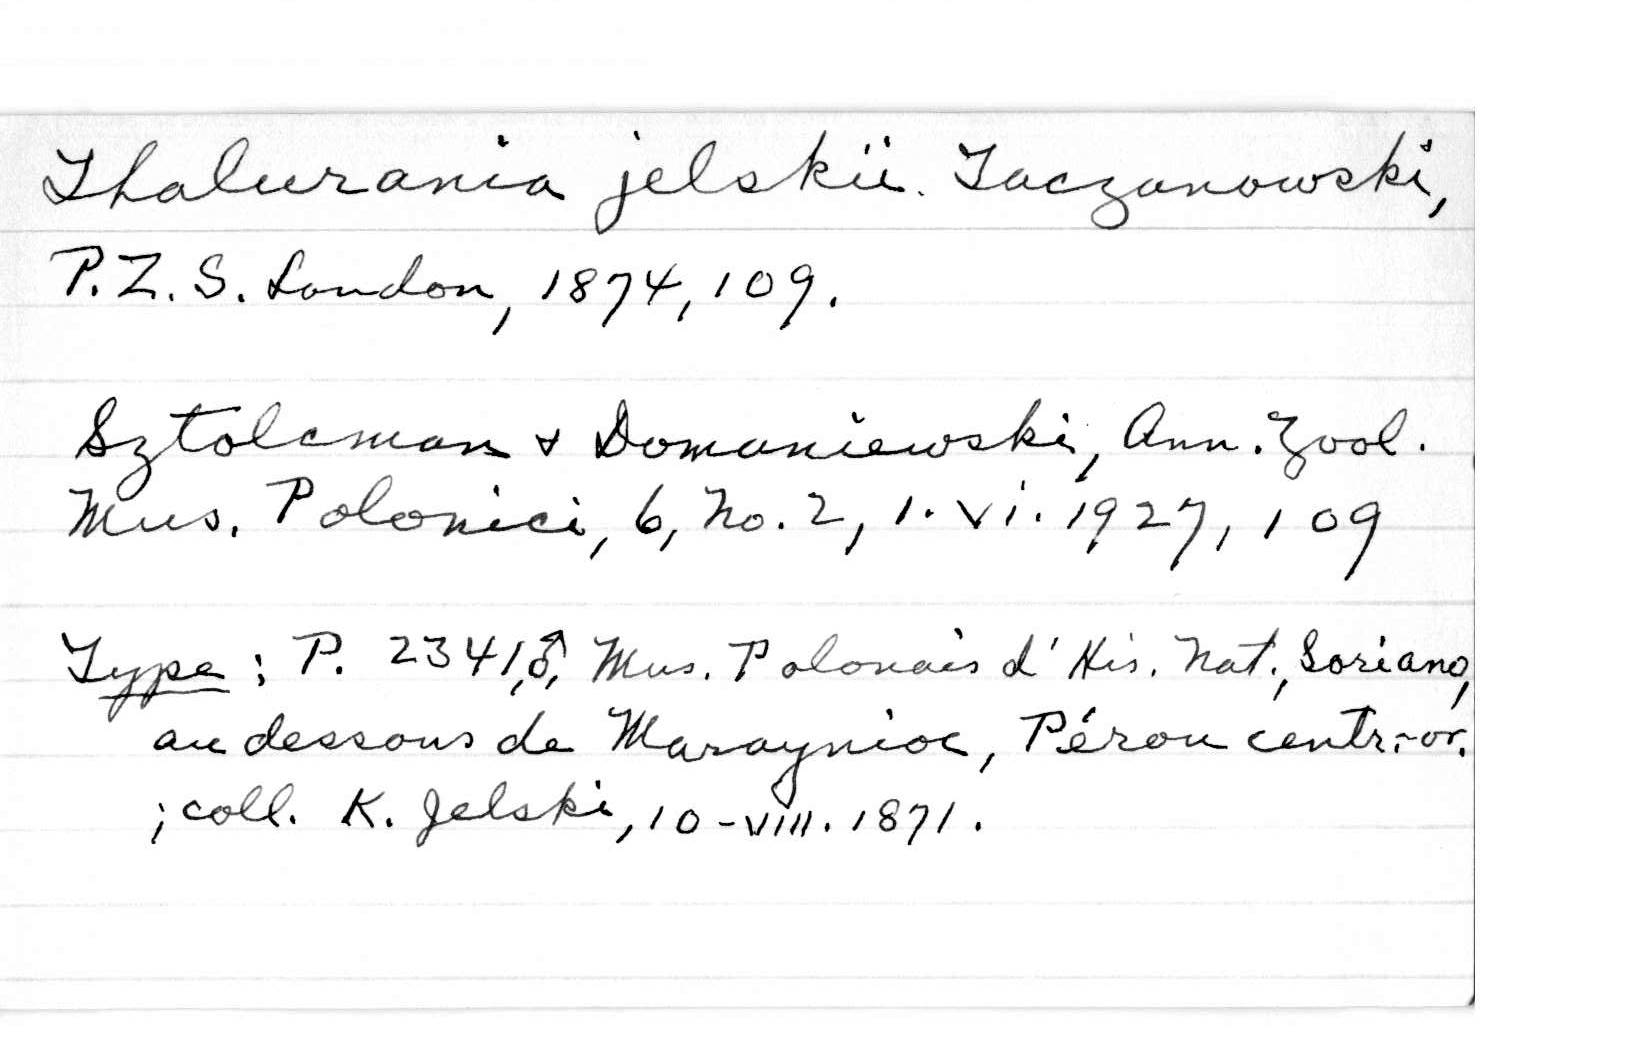 Thalurania jelskii. Taczanowski,
P. Z. S. London, 1874, 109.
Sztolcman & Domaniewski, Ann. Zool.
Mus. Polonici, 6, No. 2, 1. vi. 1927, 109
Type: P. 2341, ♂, Mus. Polonais d' His. Nat.; Soriano,
au dessous de Maraynioc, Pérou centr.-or.
; coll. K. Jelski, 10-viii. 1871.